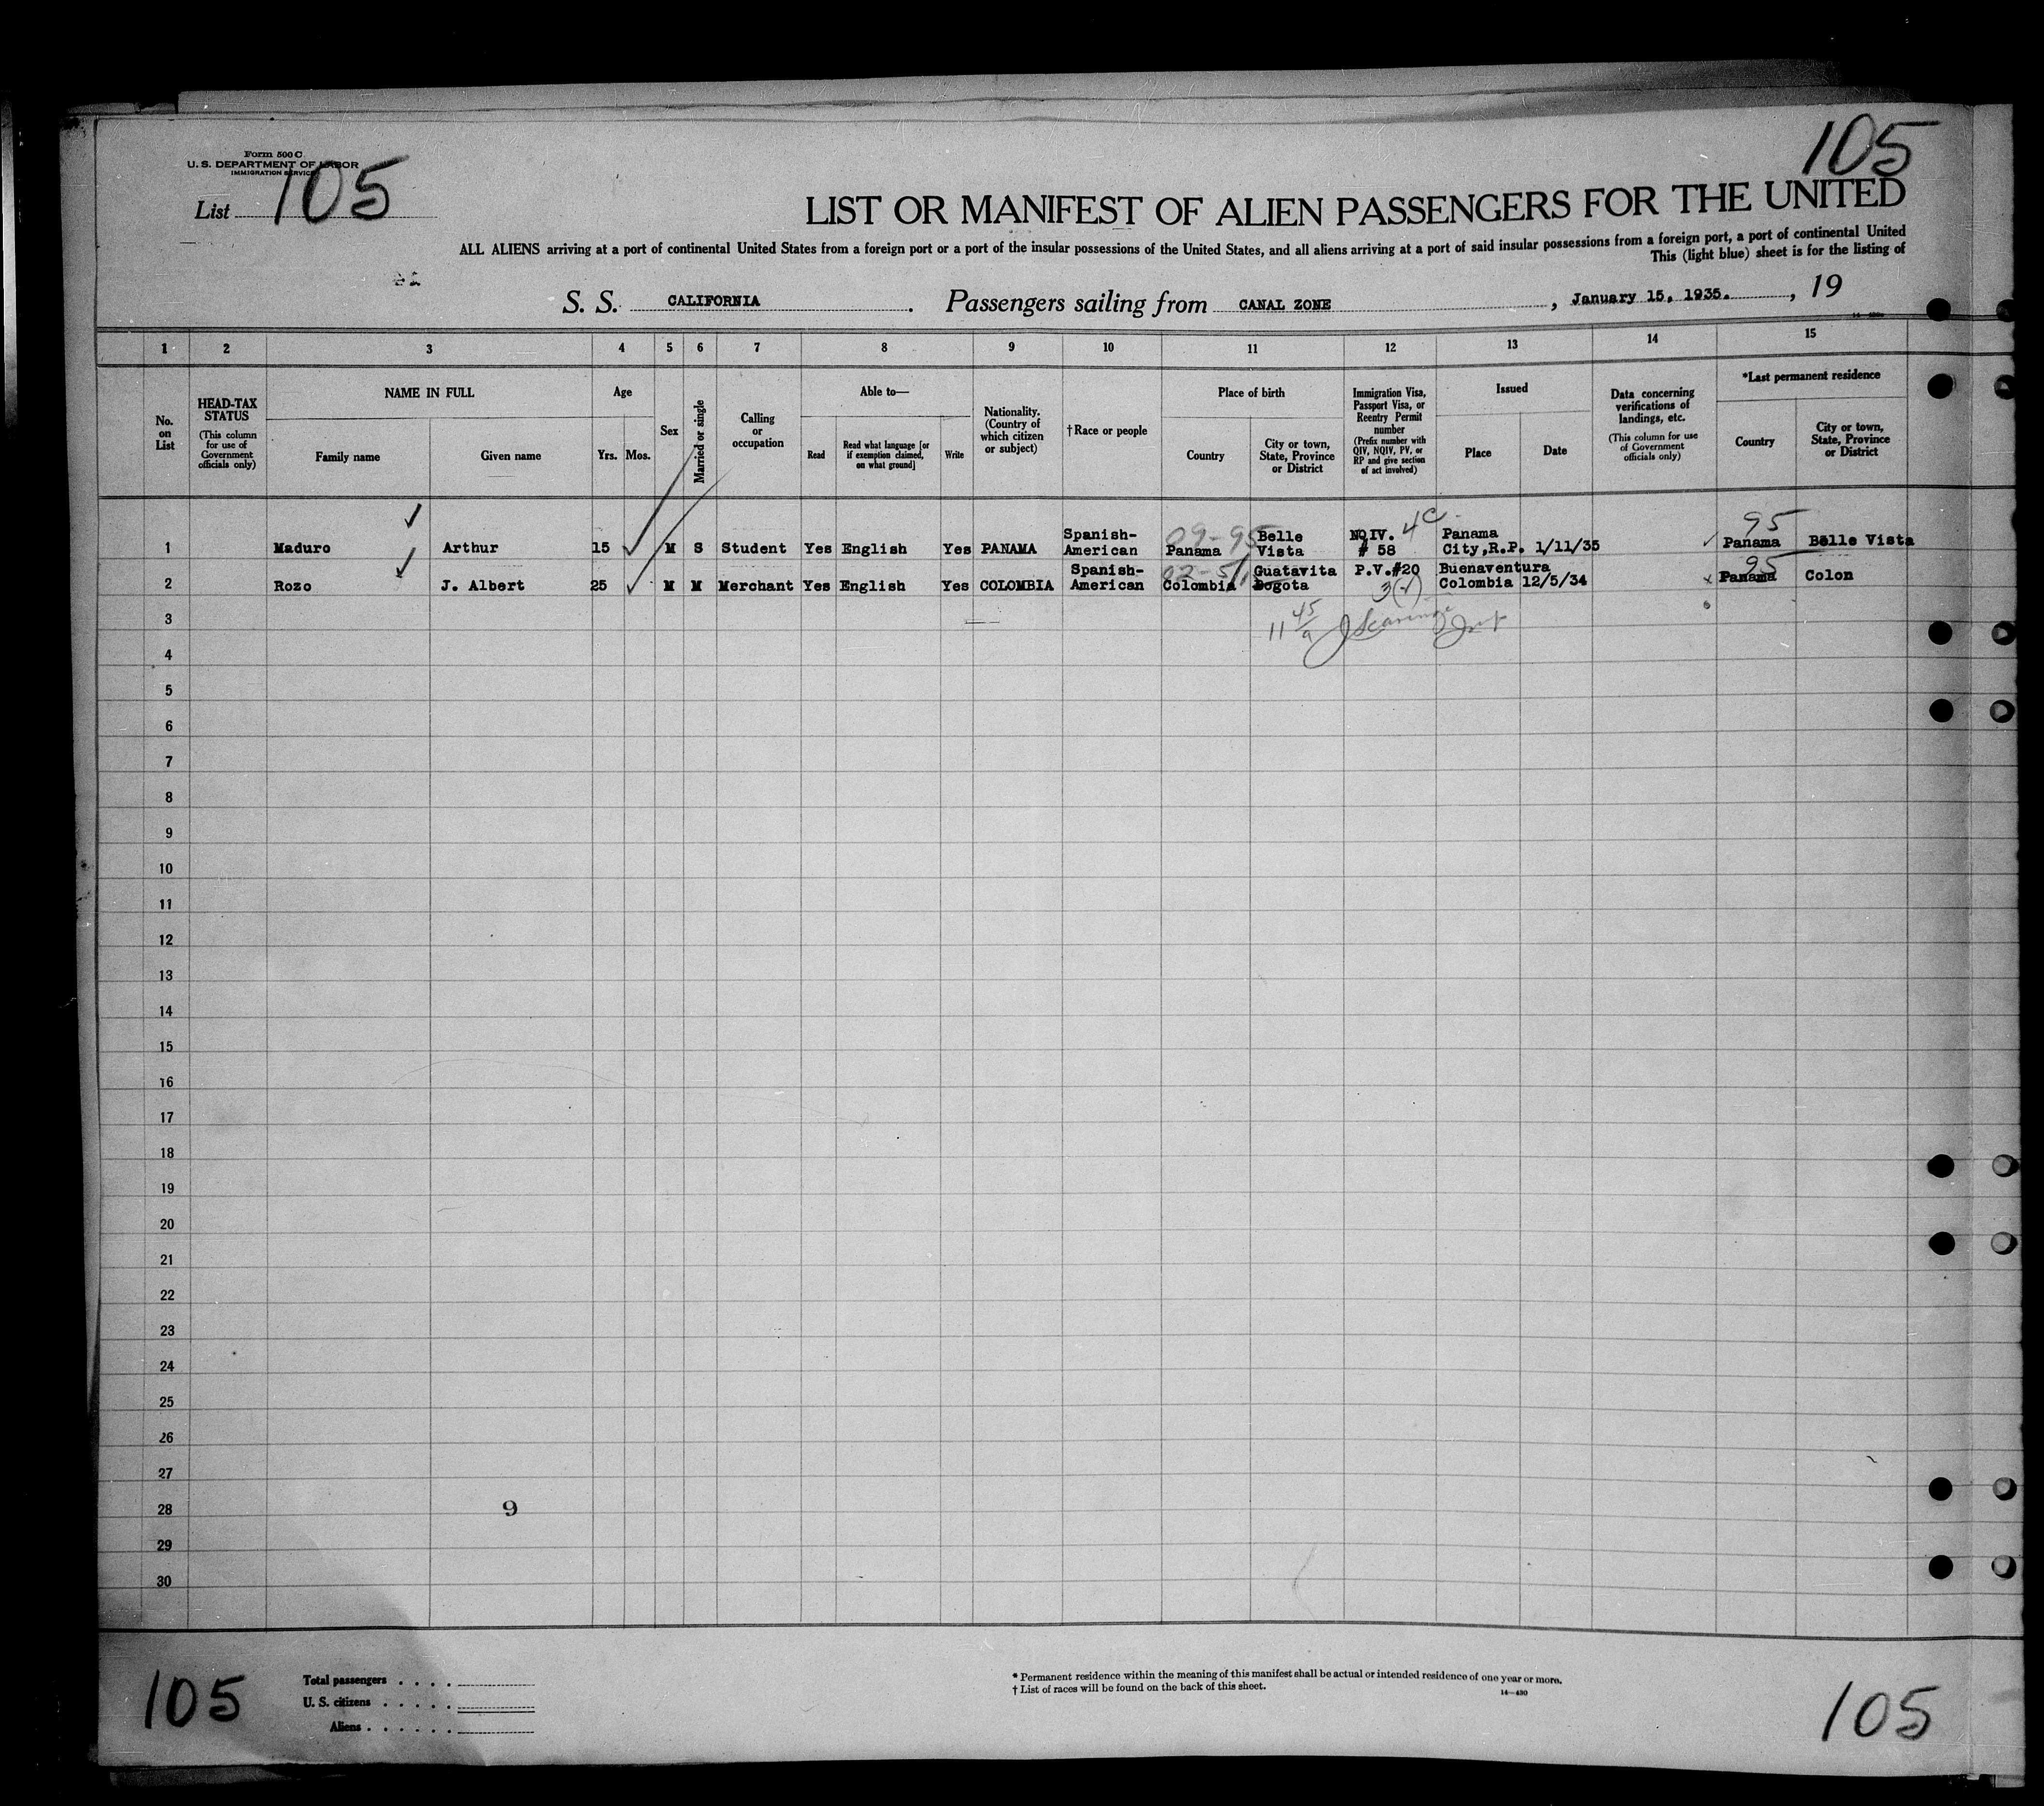 105
Form 500 C
U. S. DEPARTMENT OF LABOR
IMMIGRATION SERVICE
List 105
LIST OR MANIFEST OF ALIEN PASSENGERS FOR THE UNITED
ALL ALIENS arriving at a port of continental United States from a foreign port or a port of the insular possessions of the United States, and all aliens arriving at a port of said insular possessions from a foreign port, a port of continental United
This (light blue) sheet is for the listing of
S. S. CALIFORNIA. Passengers sailing from CANAL ZONE, January 15, 1935., 19
1 2 3 4 5 6 7 8 9 10 11 12 13 14 15
No. on List
HEAD-TAX STATUS
(This column for use of Government officials only)
NAME IN FULL
Family name Given name
Age
Yrs. Mos.
Sex
Married or single
Calling or occupation
Able to—
Read
Read what language [or if exemption claimed, on what ground]
Write
Nationality. (Country of which citizen or subject)
†Race or people
Place of birth
Country
City or town, State, Province or District
Immigration Visa, Passport Visa, or Reentry Permit number
(Prefix number with QIV, NQIV, PV, or RP and give section of act involved)
Issued
Place Date
Data concerning verifications of landings, etc.
(This column for use of Government officials only)
*Last permanent residence
Country
City or town, State, Province or District
1 Maduro Arthur 15 M S Student Yes English Yes PANAMA Spanish-American 09-95 Panama Belle Vista NQIV. # 58 4C Panama City,R.P. 1/11/35 95 Panama Belle Vista
2 Rozo J. Albert 25 M M Merchant Yes English Yes COLOMBIA Spanish-American Colombia Guatavita Bogota P.V.#20 Buenaventura Colombia 12/5/34 95 Panama Colon
3
4
5
6
7
8
9
10
11
12
13
14
15
16
17
18
19
20
21
22
23
24
25
26
27
28 9
29
30
105
Total passengers . . . .
U. S. citizens . . . . .
Aliens . . . . . .
* Permanent residence within the meaning of this manifest shall be actual or intended residence of one year or more.
† List of races will be found on the back of this sheet.
14—430
105